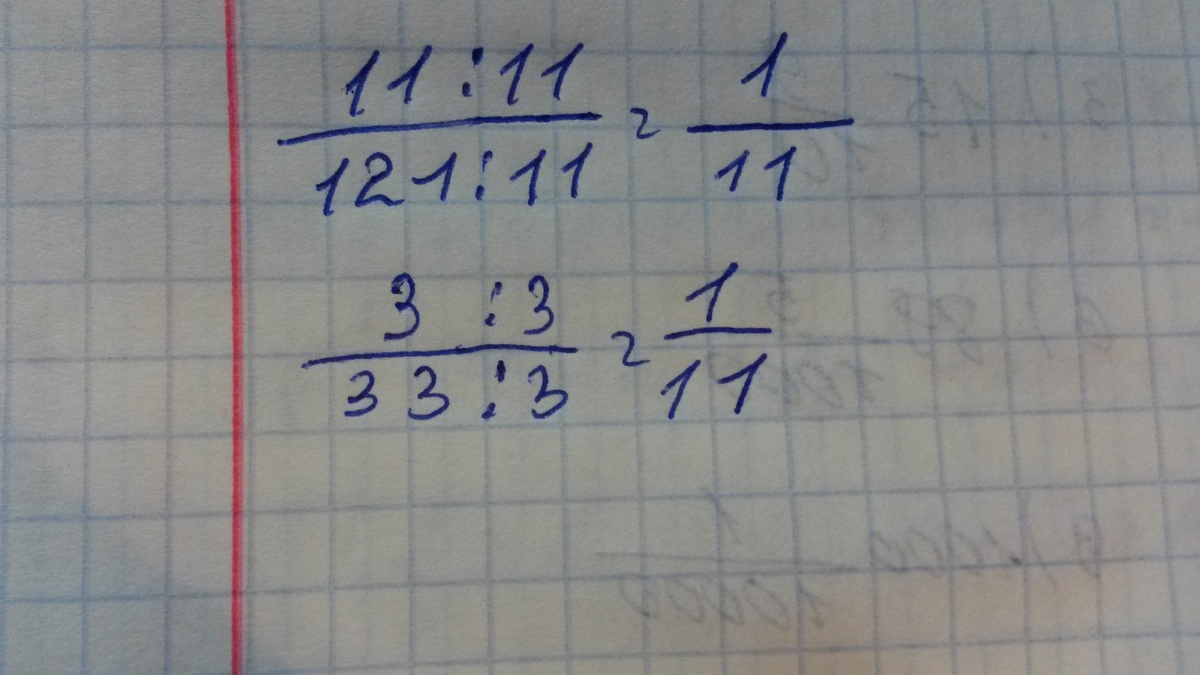 11:11 / 121:11 = 1 / 11
3 :3 / 33 :3 = 1 / 11